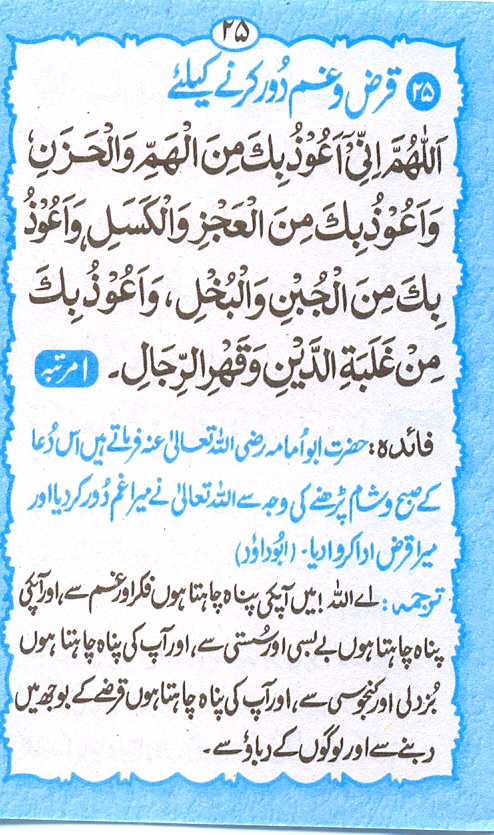 ۲۵
۲۵ قرض وغم دُور کرنے کیلئے
اَللّٰهُمَّ اِنِّیْٓ اَعُوْذُ بِكَ مِنَ الْهَمِّ وَالْحَزَنِ،
وَاَعُوْذُ بِكَ مِنَ الْعَجْزِ وَالْكَسَلِ، وَاَعُوْذُ
بِكَ مِنَ الْجُبْنِ وَالْبُخْلِ، وَاَعُوْذُ بِكَ
مِنْ غَلَبَةِ الدَّيْنِ وَقَهْرِ الرِّجَالِ۔ ۱ مرتبہ
فائدہ: حضرت ابو اُمامہ رضی اللہ تعالیٰ عنہ فرماتے ہیں اس دُعا
کے صبح وشام پڑھنے کی وجہ سے اللہ تعالیٰ نے میرا غم دُور کردیا اور
میرا قرض ادا کروا دیا۔ (ابوداؤد)
ترجمہ: اے اللہ! میں آپکی پناہ چاہتا ہوں فکر اور غم سے، اور آپکی
پناہ چاہتا ہوں بے بسی اور سُستی سے، اور آپ کی پناہ چاہتا ہوں
بُزدلی اور کنجوسی سے، اور آپ کی پناہ چاہتا ہوں قرضے کے بوجھ میں
دبنے سے اور لوگوں کے دباؤ سے۔